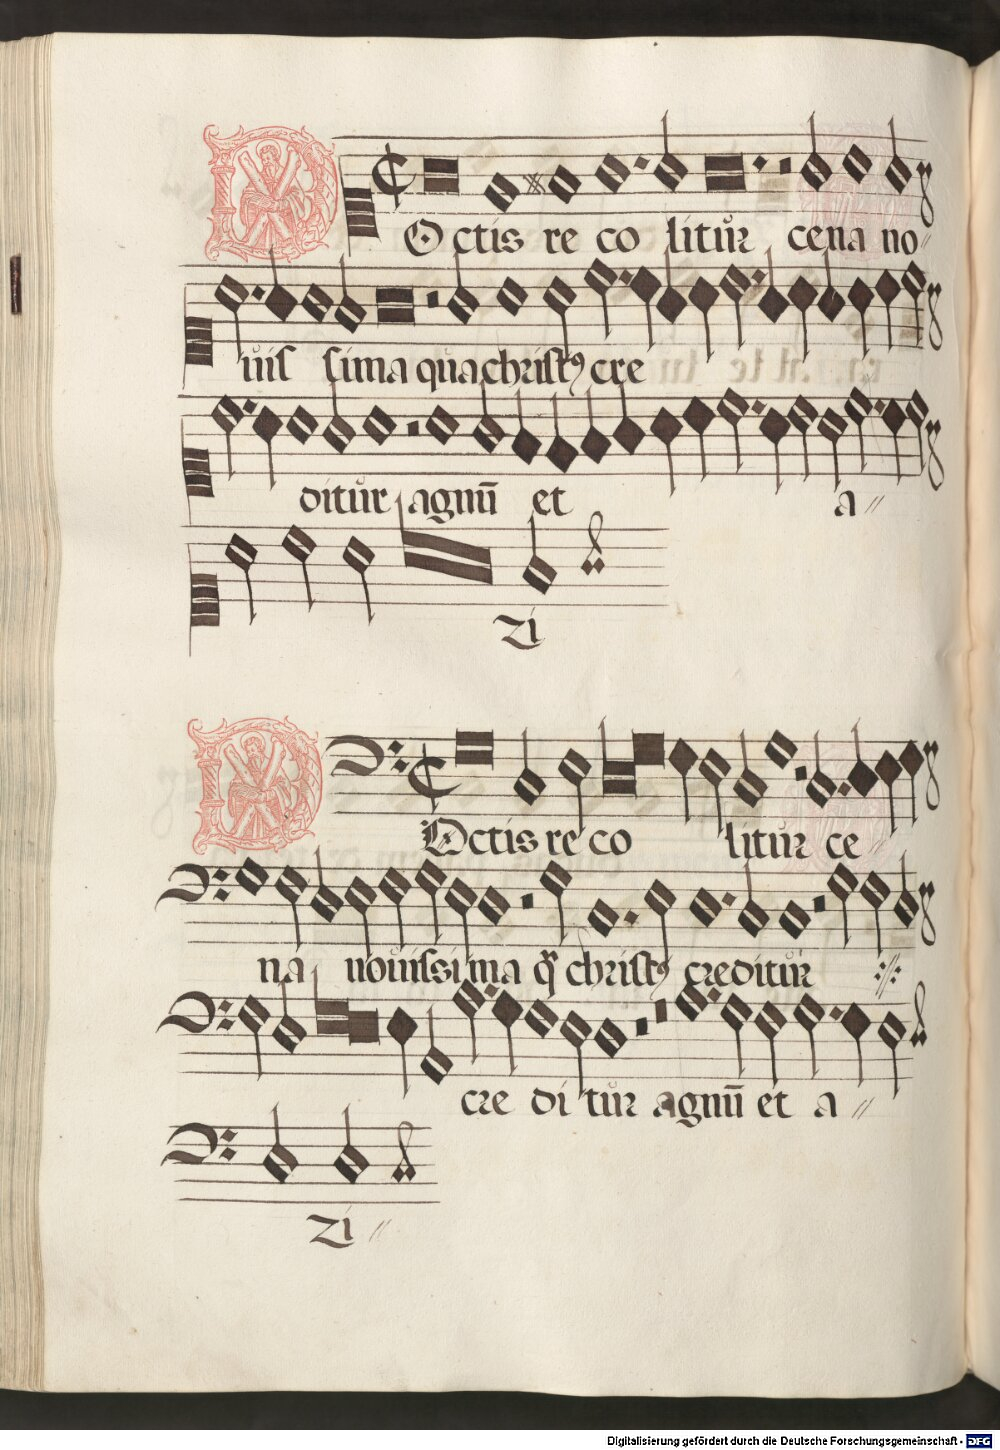 Octis re co litur cena no〃
uis sima qua christꝰ cre
ditur agnū et a〃
zi
Octis re co litur ce〃
na nouissima q̄ christꝰ creditur ://:
cre di tur agnū et a〃
zi〃
Digitalisierung gefördert durch die Deutsche Forschungsgemeinschaft - DFG